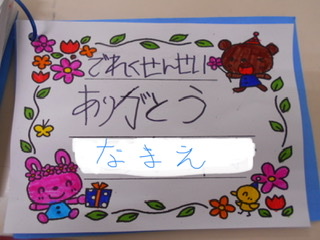 でれくせんせい
ありがとう
なまえ